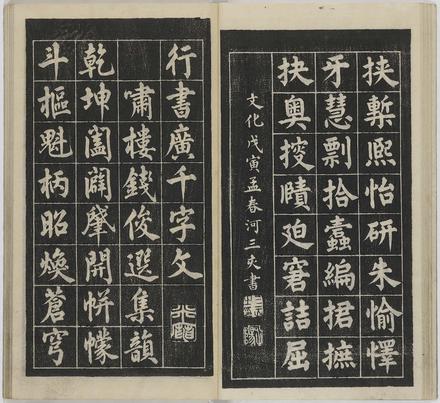 挾槧熙怡研朱愉懌
牙慧剽拾蠹編捃摭
抉奧探賾迫窘詰屈
文化戊寅孟春河三亥書
行書廣千字文
嘯樓錢俊選集韻
乾坤闔闢肇開帡幪
斗樞魁柄昭煥蒼穹